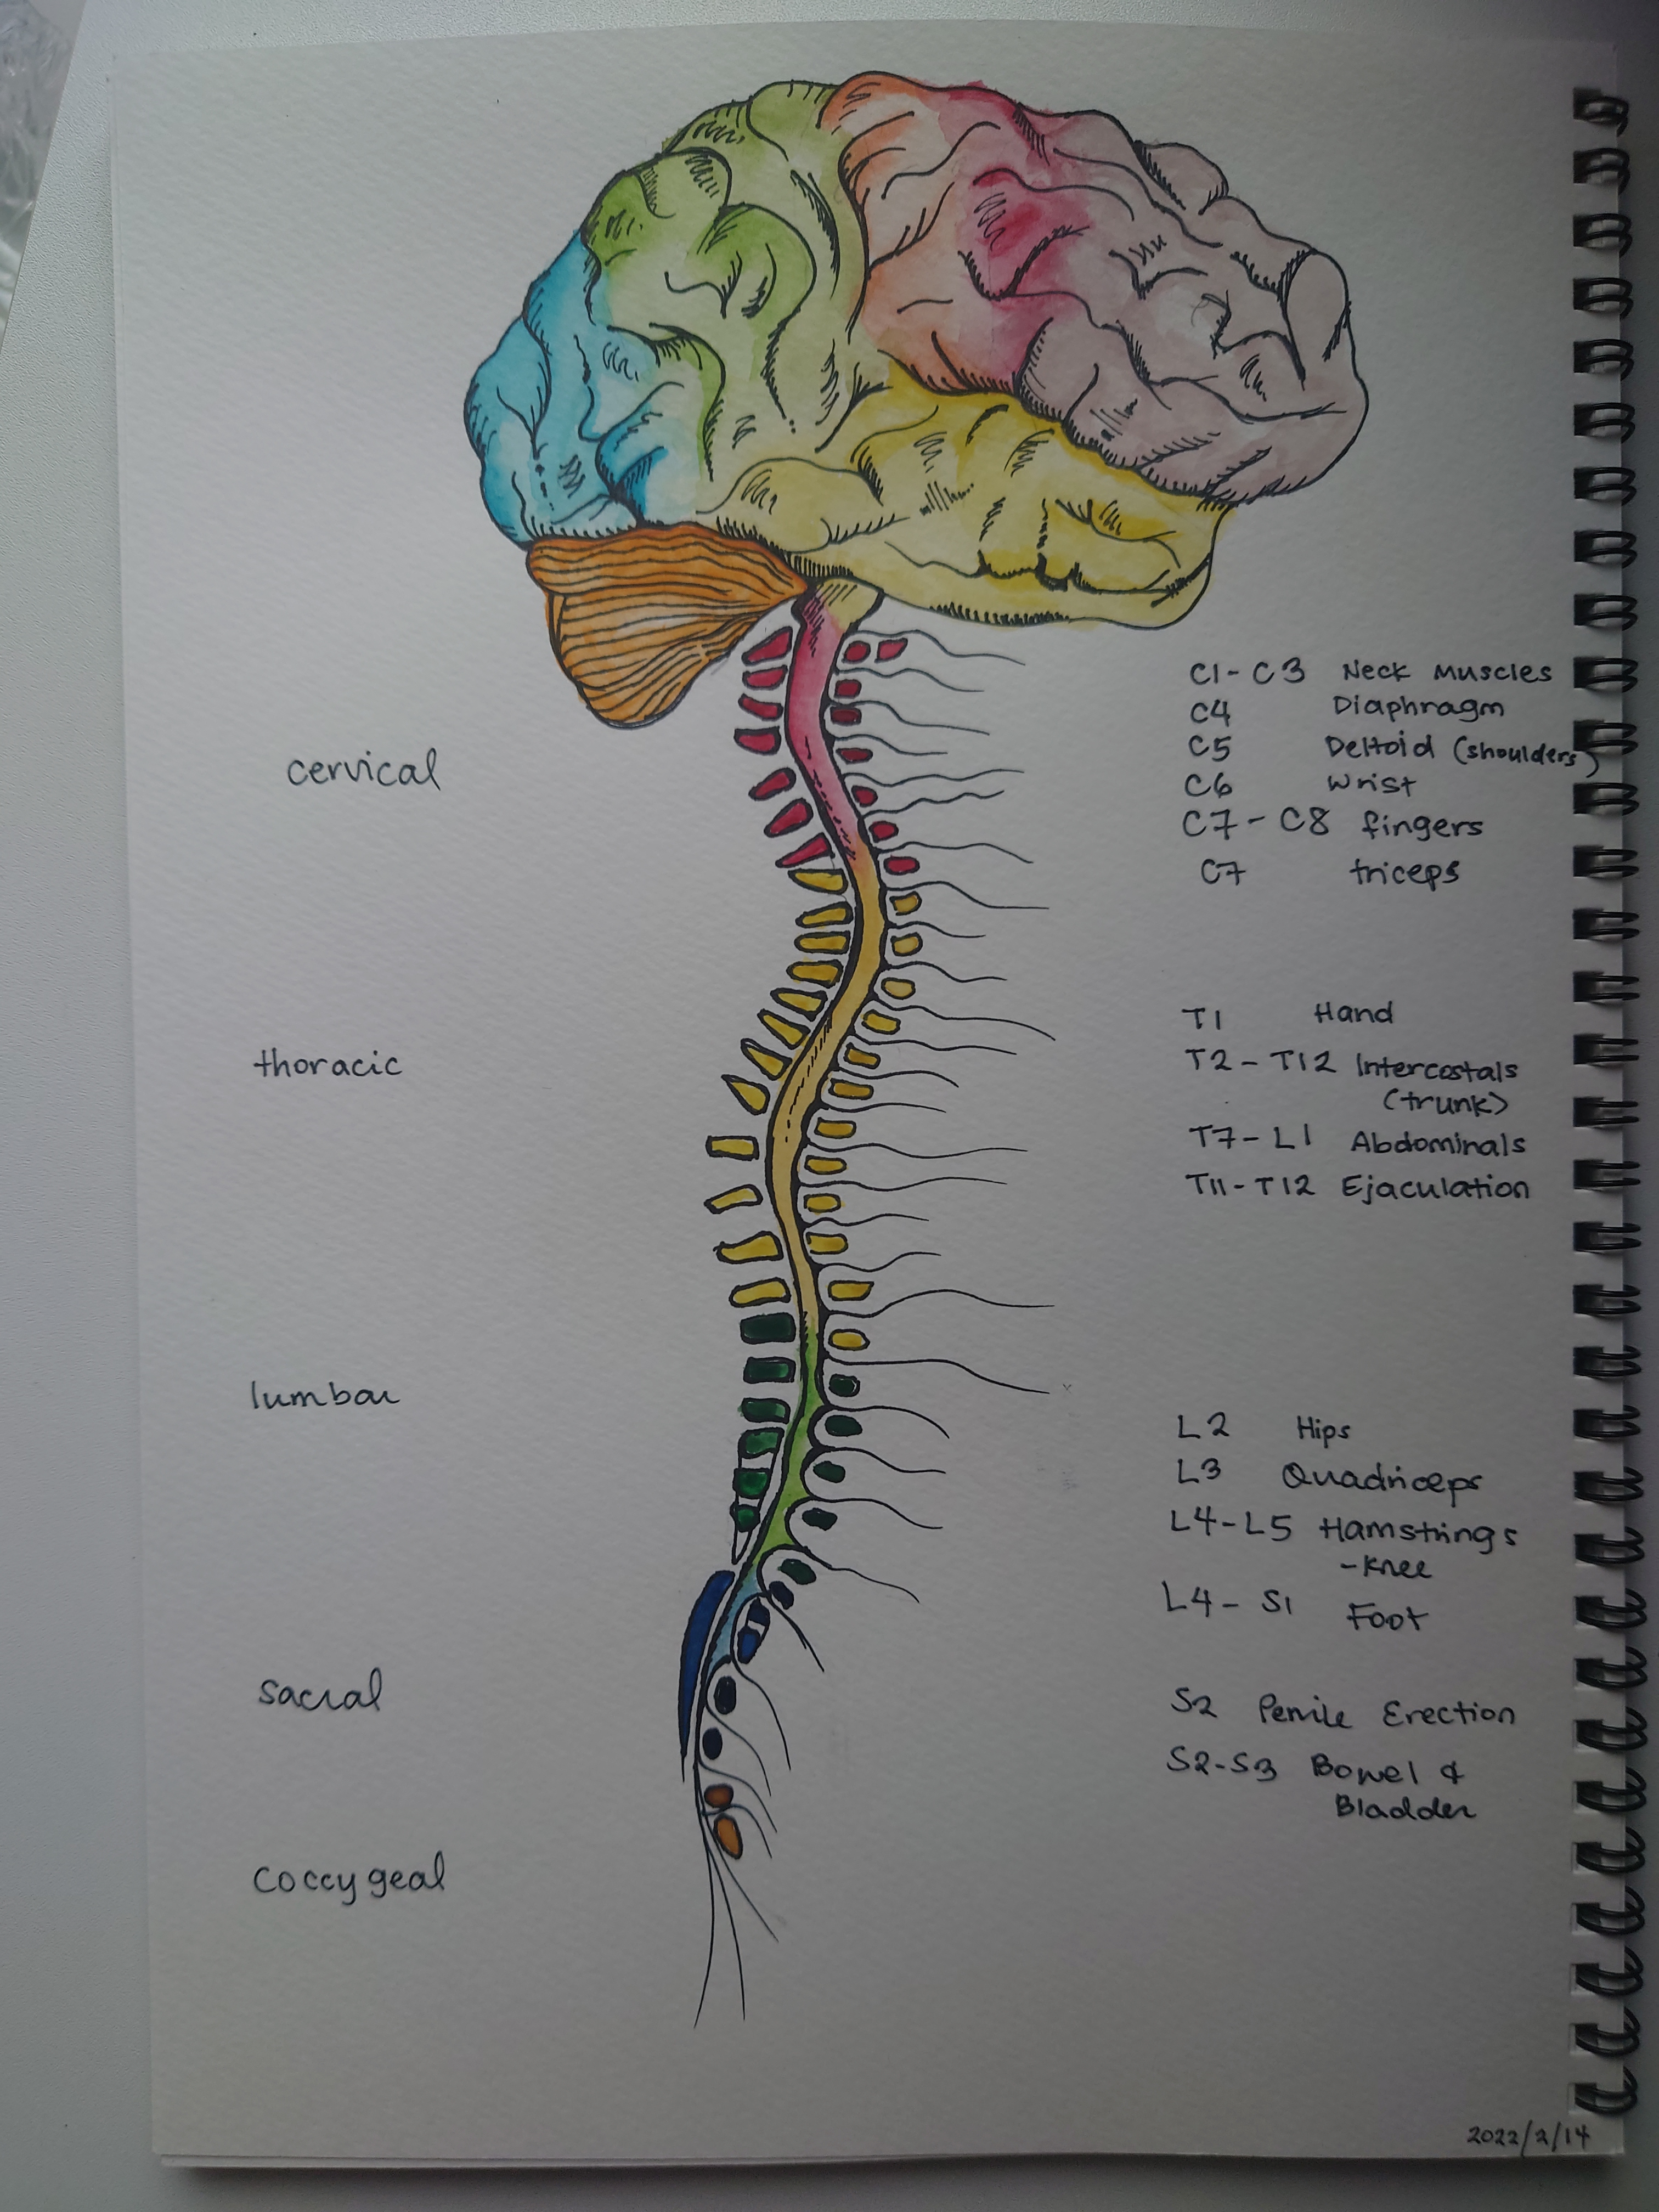 C1-C3 Neck Muscles
C4 Diaphragm
C5 Deltoid (shoulders)
cervical
C6 Wrist
C7-C8 fingers
C7 triceps
T1 Hand
thoracic
T2-T12 Intercostals
(trunk)
T7-L1 Abdominals
T11-T12 Ejaculation
lumbar
L2 Hips
L3 Quadriceps
L4-L5 Hamstrings
-knee
L4-S1 Foot
sacral
S2 Penile Erection
S2-S3 Bowel &
Bladder
coccygeal
2022/2/14